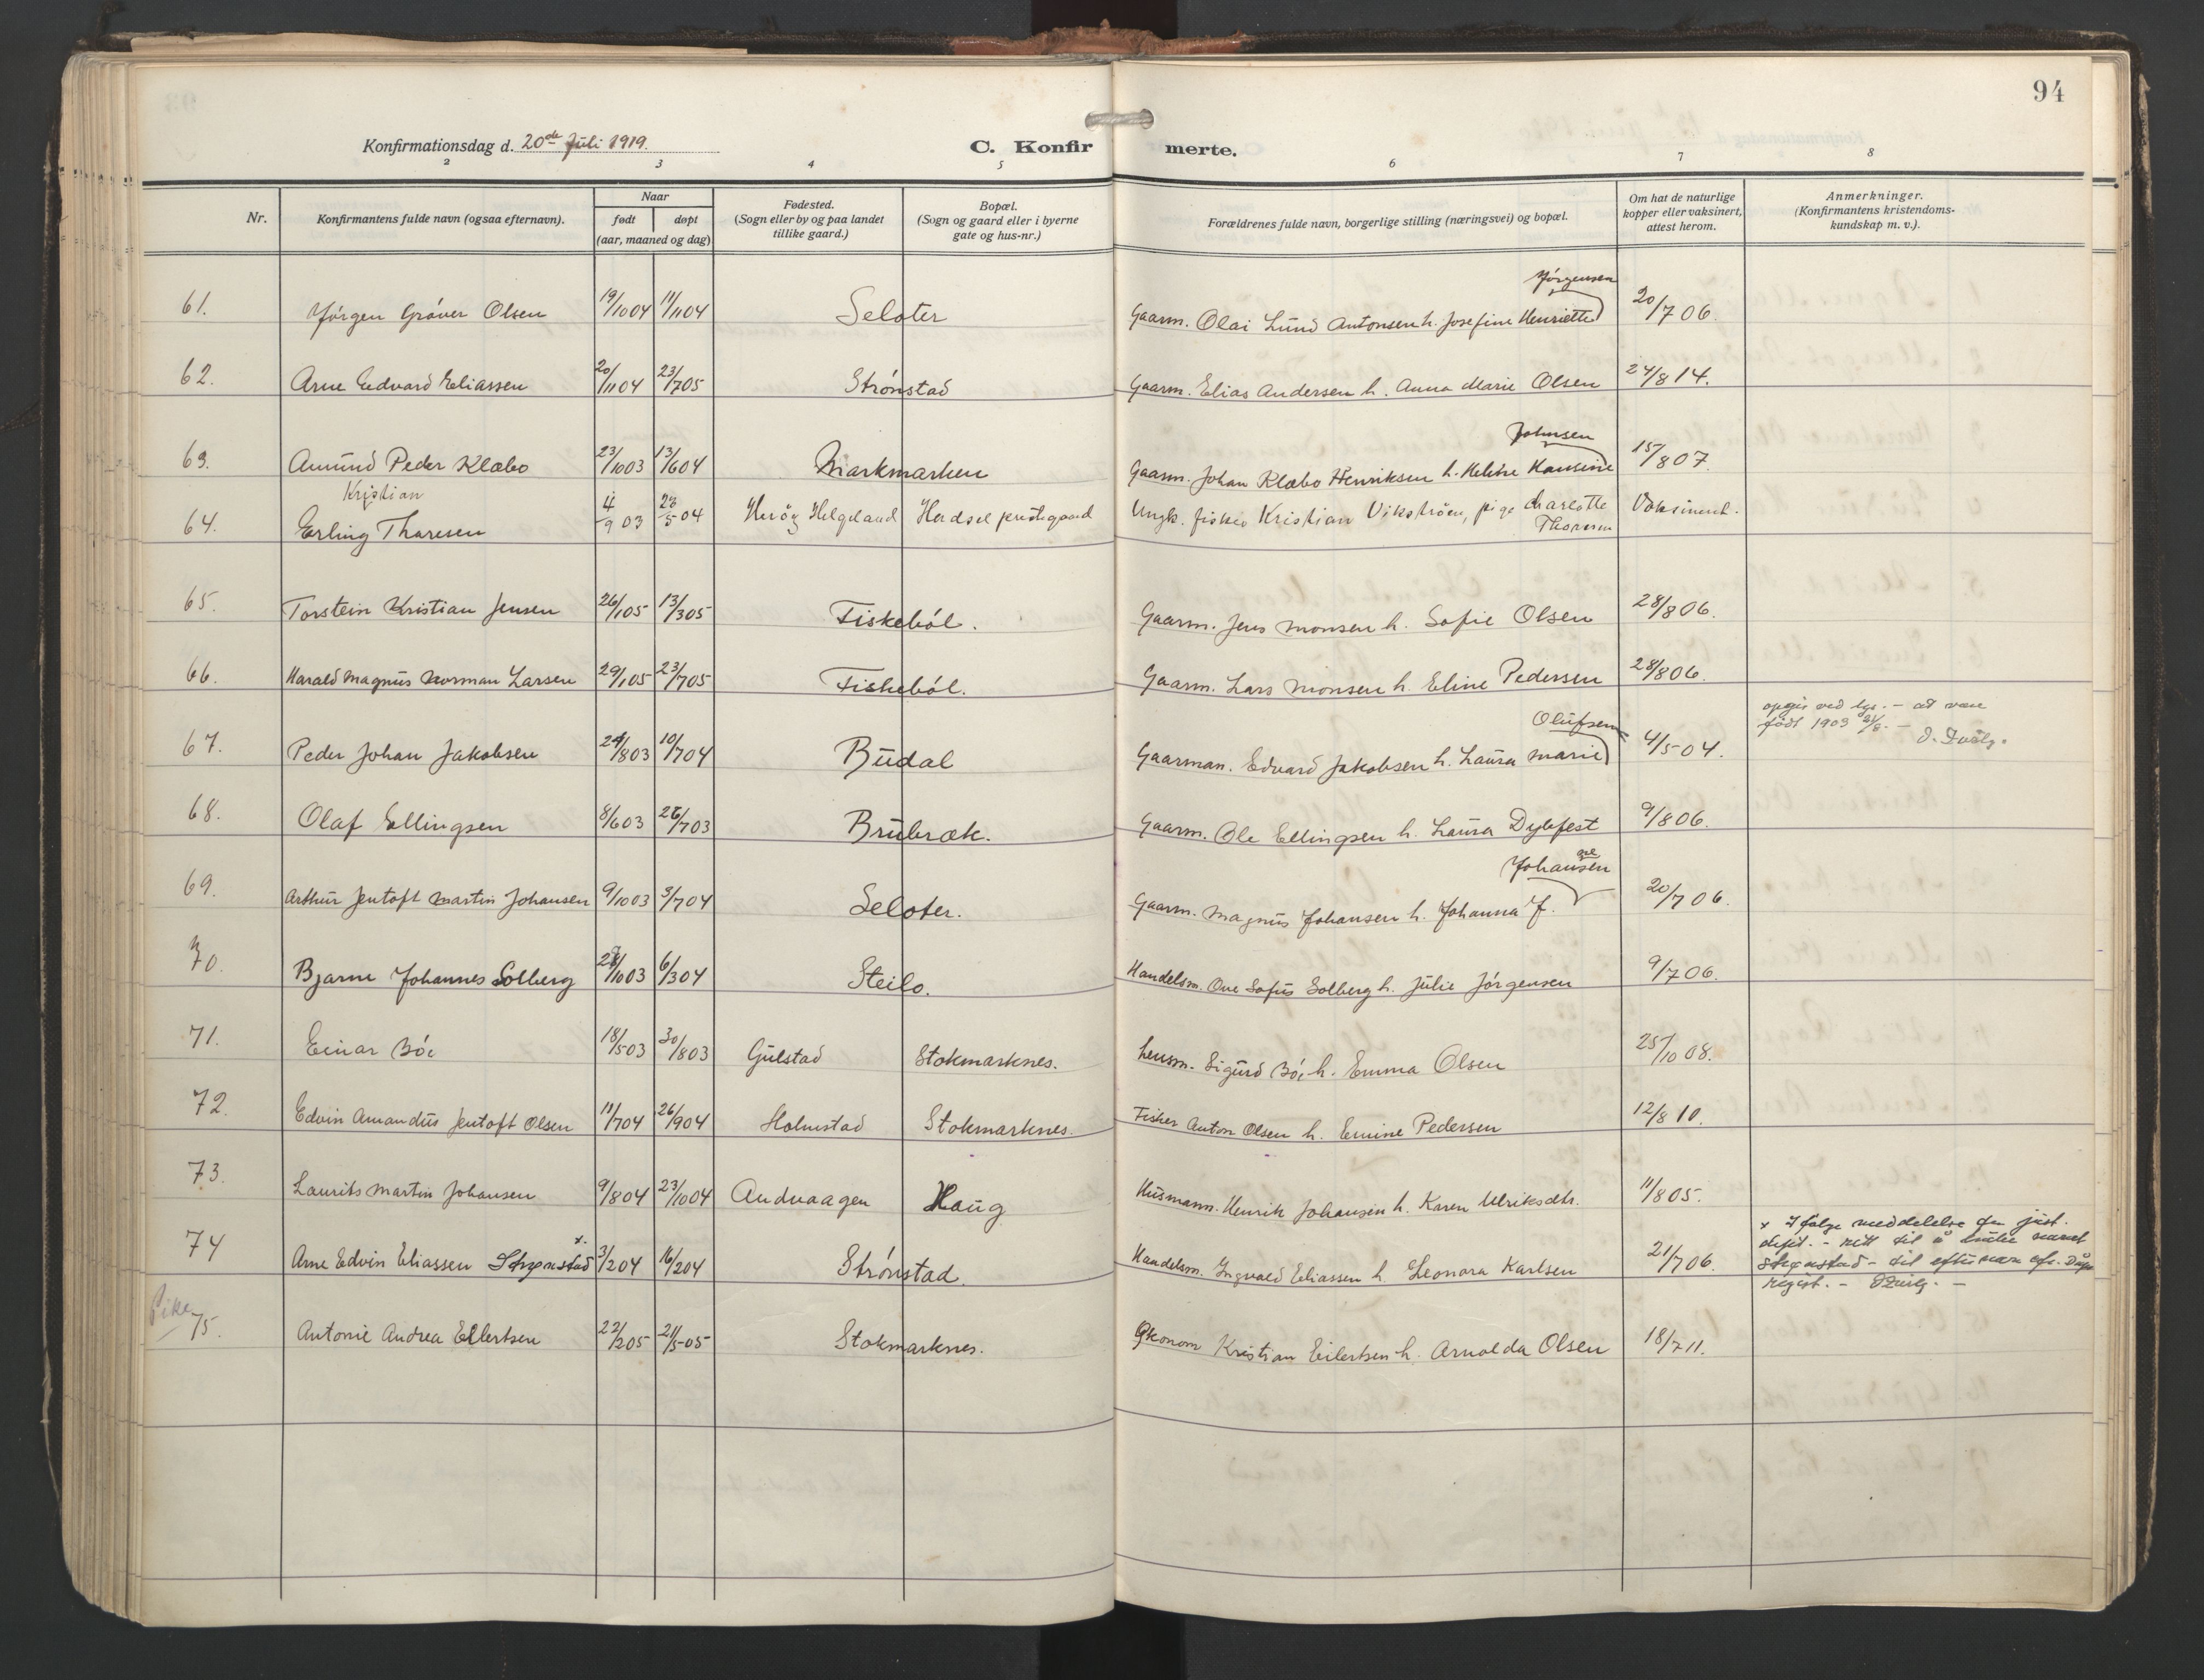 94
Konfirmationsdag d. 20de Juli 1919.
C. Konfir merte.
2 3 4 5 6 7 8
Nr. Konfirmantens fulde navn (ogsaa efternavn). Naar født døpt (aar, maaned og dag) Fødested. (Sogn eller by og paa landet tillike gaard.) Bopæl. (Sogn og gaard eller i byerne gate og hus-nr.) Forældrenes fulde navn, borgerlige stilling (næringsvei) og bopæl. Om hat de naturlige kopper eller vaksinert, attest herom. Anmerkninger. (Konfirmantens kristendoms-kundskap m. v.).
Jörgensen
61. Jörgen Gröver Olsen 19/10 04 11/11 04 Seloter Gaarm. Olai Lund Antonsen h. Josefine Henriette 20/7 06.
62. Arne Edvard Eliassen 20/11 04 23/7 05 Strönstad Gaarm. Elias Andersen h. Anna Marie Olsen 24/8 14.
Johnsen
63. Amund Peder Klæbo 23/10 03 13/6 04 Markmarken Gaarm. Johan Klæbo Henriksen h. Hansine 15/8 07.
Kristian
64. Erling Tharesen 4/9 03 23/5 04 Heröy Helgeland Hadsel prestegaard Ungk. fisker Kristian Vikströen, pige Charlotte Thoresen Vaksinert.
65. Torstein Kristian Jensen 26/1 05 13/3 05 Fiskeböl. Gaarm. Jens Monsen h. Sofie Olsen 28/8 06.
66. Harald Magnus Norman Larsen 29/1 05 23/7 05 Fiskeböl. Gaarm. Lars Monsen h. Eline Pedersen 28/8 06.
Olufsen
67. Peder Johan Jakobsen 24/8 03 10/7 04 Budal Gaarman. Edvard Jakobsen h. Laura Marie 4/5 04. opgir ved lys. - at være
født 1903 21/8. -
68. Olaf Ellingsen 8/6 03 26/7 03 Brubræk. Gaarm. Ole Ellingsen h. Laura Dybfest 9/8 06.
Johansen
69. Arthur Jentoft Martin Johansen 9/10 03 3/7 04 Seloter. Gaarm. Magnus Johansen h. Johanna J. 20/7 06.
70. Bjarne Johannes Solberg 28/10 03 6/3 04 Steilo. Handelsm. Ove Sofus Solberg h. Julie Jörgensen 9/7 06.
71. Einar Böe 18/5 03 30/8 03 Gulstad Stokmarknes. Lensm. Sigurd Böe h. Emma Olsen 25/10 08.
72. Edvin Amandus Jentoft Olsen 11/7 04 26/9 04 Holmstad Stokmarknes. Fisker Anton Olsen h. Emine Pedersen 12/8 10.
73. Laurits Martin Johansen 9/8 04 23/10 04 Andvaagen Haug Husmann. Henrik Johansen h. Karen Ulriksdtr. 11/8 05.
74 Arne Edvin Eliassen Strønstad x. 3/2 04 16/2 04 Strönstad. Handelsm. Ingvald Eliassen h. Leonora Karlsen 21/7 06. x Ifølge meddelelse fra just.
dept. - rett til å bruke navnet
Strønstad - til efternavn
regist. -
Pike
75. Antonie Andrea Eilertsen 22/2 05 21/5 05 Stokmarknes. Økonom Kristian Eilertsen h. Arnolda Olsen 18/7 11.